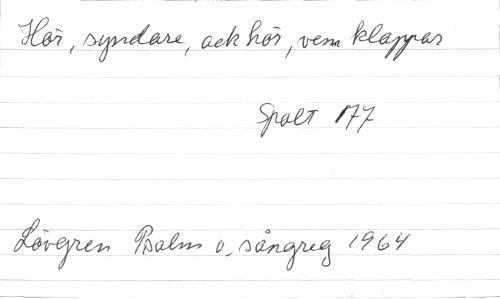 Hör, syndare, ack hör, vem klappar
Spalt 177
Lövgren Psalm o. sångreg 1964